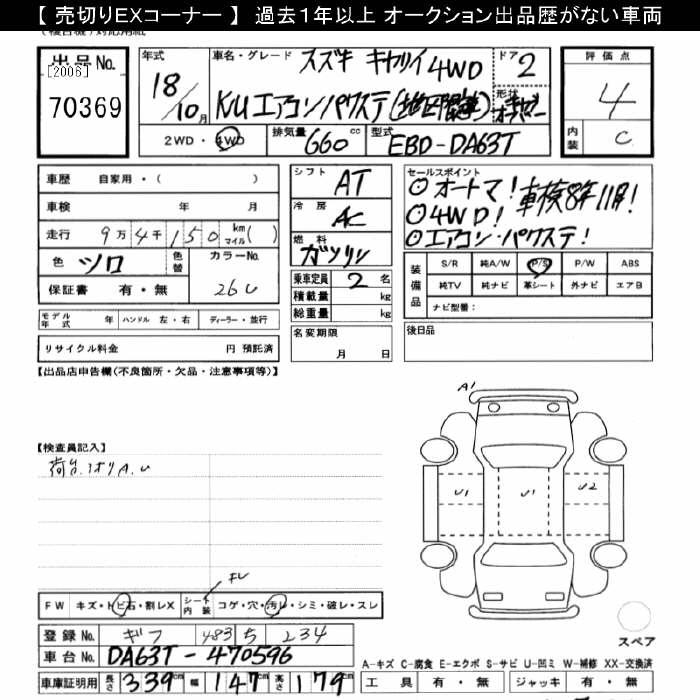 【 売切りEXコーナー 】 過去1年以上 オークション出品歴がない車両
出品No.
[2006]
70369
年式
18
10月
車名・グレード
スズキ キャリイ 4WD
KUエアコンパワステ
ドア
2
形状
評価点
4
内装
C
2WD・4WD
排気量 660 cc
型式 EBD-DA63T
車歴 自家用・( )
車検 年 月
走行 9万4千150 km マイル( )
色 シロ 色替
カラーNo. 26U
保証書 有・無
モデル年式 年 ハンドル 左・右 ディーラー・並行
リサイクル料金 円 預託済
シフト AT
冷房 AC
燃料 ガソリン
乗車定員 2 名
積載量 kg
総重量 kg
名変期限
月 日
セールスポイント
◎オートマ! 車検8年11月!
◎4WD!
◎エアコン・パワステ!
装備品
S/R 純A/W P/S P/W ABS
純TV 純ナビ 革シート 外ナビ エアB
ナビ型番:
後日品
【出品店申告欄(不良箇所・欠品・注意事項等)】
【検査員記入】
A1
U1 U1 U2
FW キズ・トビ石・割レX シート内装 コゲ・穴・汚レ・シミ・破レ・スレ
登録No. ギフ 483 ち 234
車台No. DA63T-470596
車庫証明用 長さ 339cm 幅 147cm 高さ 179cm
スペア
A-キズ C-腐食 E-エクボ S-サビ U-凹ミ W-補修 XX-交換済
工具 有・無 ジャッキ 有・無